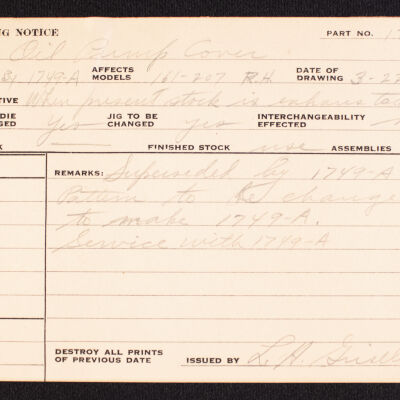 NG NOTICE PART NO. 17
Oil Pump Cover
By 1749-A AFFECTS MODELS 161-207 R.H. DATE OF DRAWING 3-22
TIVE When present stock is exhausted
DIE GED yes JIG TO BE CHANGED yes INTERCHANGEABILITY EFFECTED
K FINISHED STOCK use ASSEMBLIES
REMARKS: Superseded by 1749-A
Pattern to be change
to make 1749-A.
Service with 1749-A
DESTROY ALL PRINTS OF PREVIOUS DATE ISSUED BY L. H.